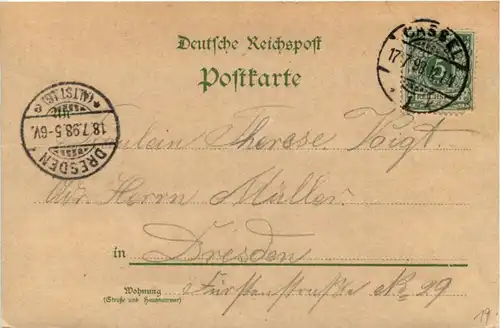 Deutsche Reichspost
Postkarte
CASSEL
17.7.98
5
(ALTST.16) c
18.7.98.5-6V.
DRESDEN
Fräulein Therese Voigt.
Adr. Herrn Müller.
in Dresden
Wohnung
(Straße und Hausnummer)
Fürstenstraße No 29
19.-